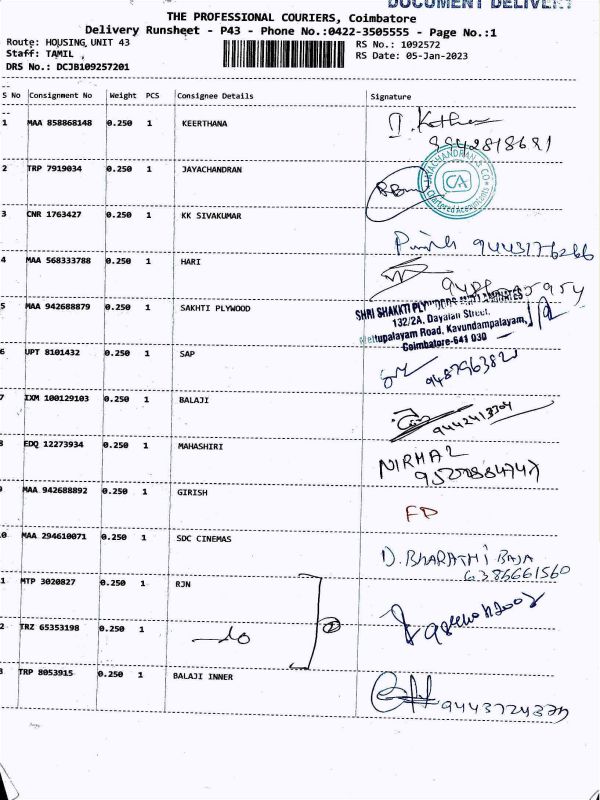 DOCUMENT DELIVERY
THE PROFESSIONAL COURIERS, Coimbatore
Delivery Runsheet - P43 - Phone No.:0422-3505555 - Page No.:1
Route: HOUSING UNIT 43 RS No.: 1092572
Staff: TAMIL , RS Date: 05-Jan-2023
DRS No.: DCJB109257201
S No Consignment No Weight PCS Consignee Details Signature
1 MAA 858868148 0.250 1 KEERTHANA
2 TRP 7919034 0.250 1 JAYACHANDRAN
JAYACHANDRAN & CO
CA
Chartered Accountants
3 CNR 1763427 0.250 1 KK SIVAKUMAR
9443176266
4 MAA 568333788 0.250 1 HARI
5 MAA 942688879 0.250 1 SAKHTI PLYWOOD
SHRI SHAKKTI
132/2A, Dayalan Street,
Mettupalayam Road, Kavundampalayam,
Coimbatore-641 030
6 UPT 8101432 0.250 1 SAP
7 IXM 100129103 0.250 1 BALAJI
9442413304
8 EDQ 12273934 0.250 1 MAHASHIRI
NIRMAL
9 MAA 942688892 0.250 1 GIRISH
FD
0 MAA 294610071 0.250 1 SDC CINEMAS
D. BHARATHI RAJA
6385661560
1 MTP 3020827 0.250 1 RJN
2 TRZ 65353198 0.250 1 do
3 TRP 8053915 0.250 1 BALAJI INNER